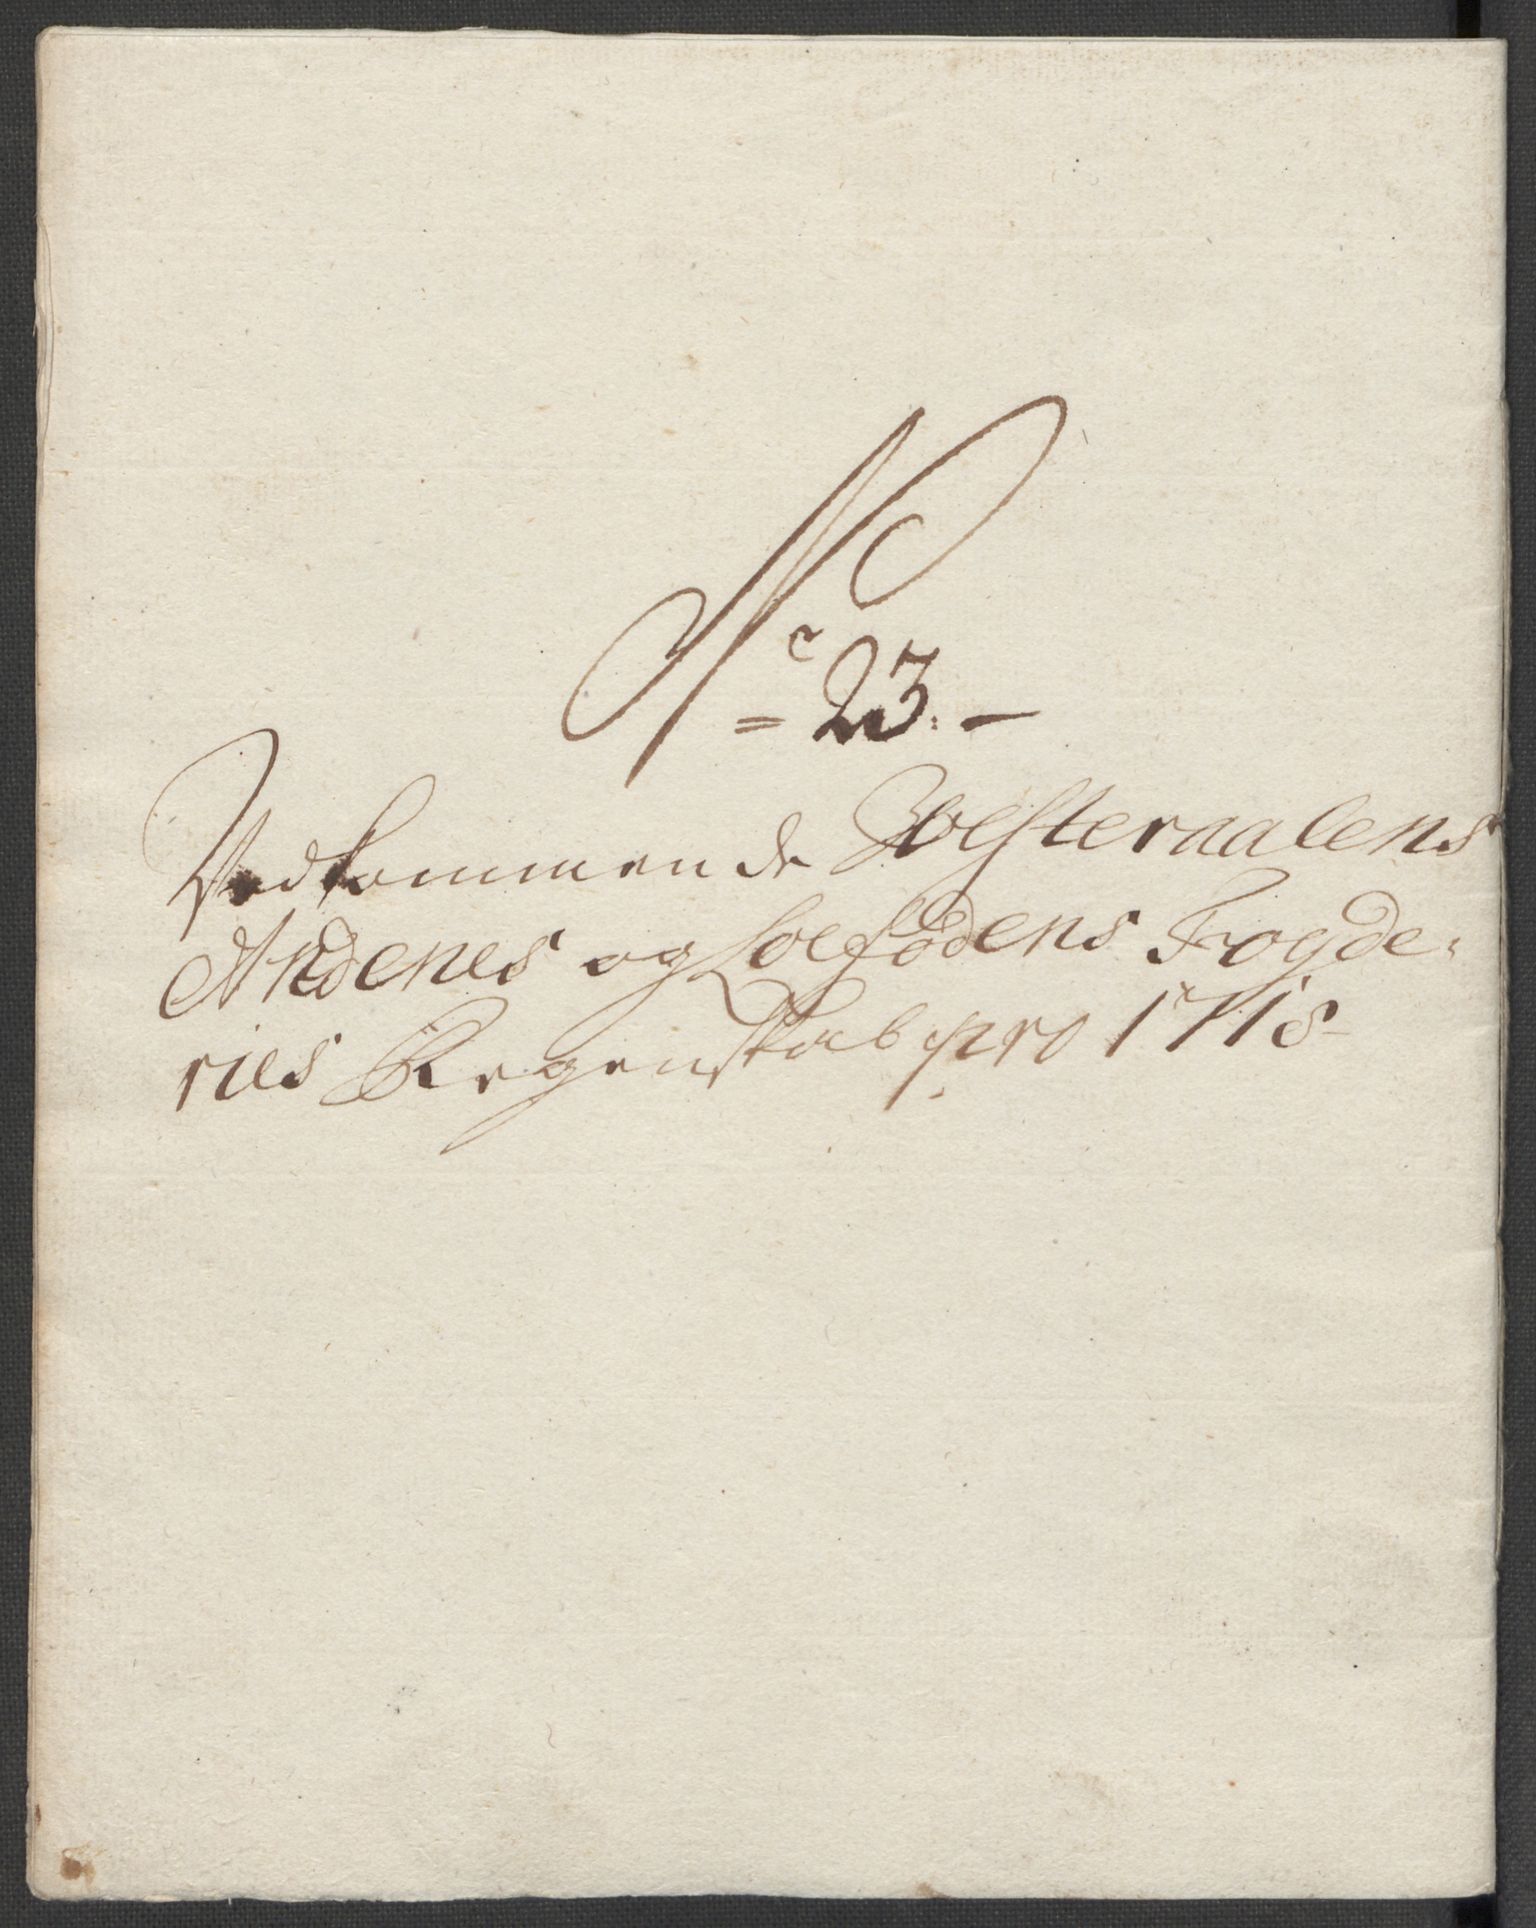 No 23. –
Vedkommende Westeraalens
Andenes og Loefødens Fogde=
ries Regenskab pro 1718